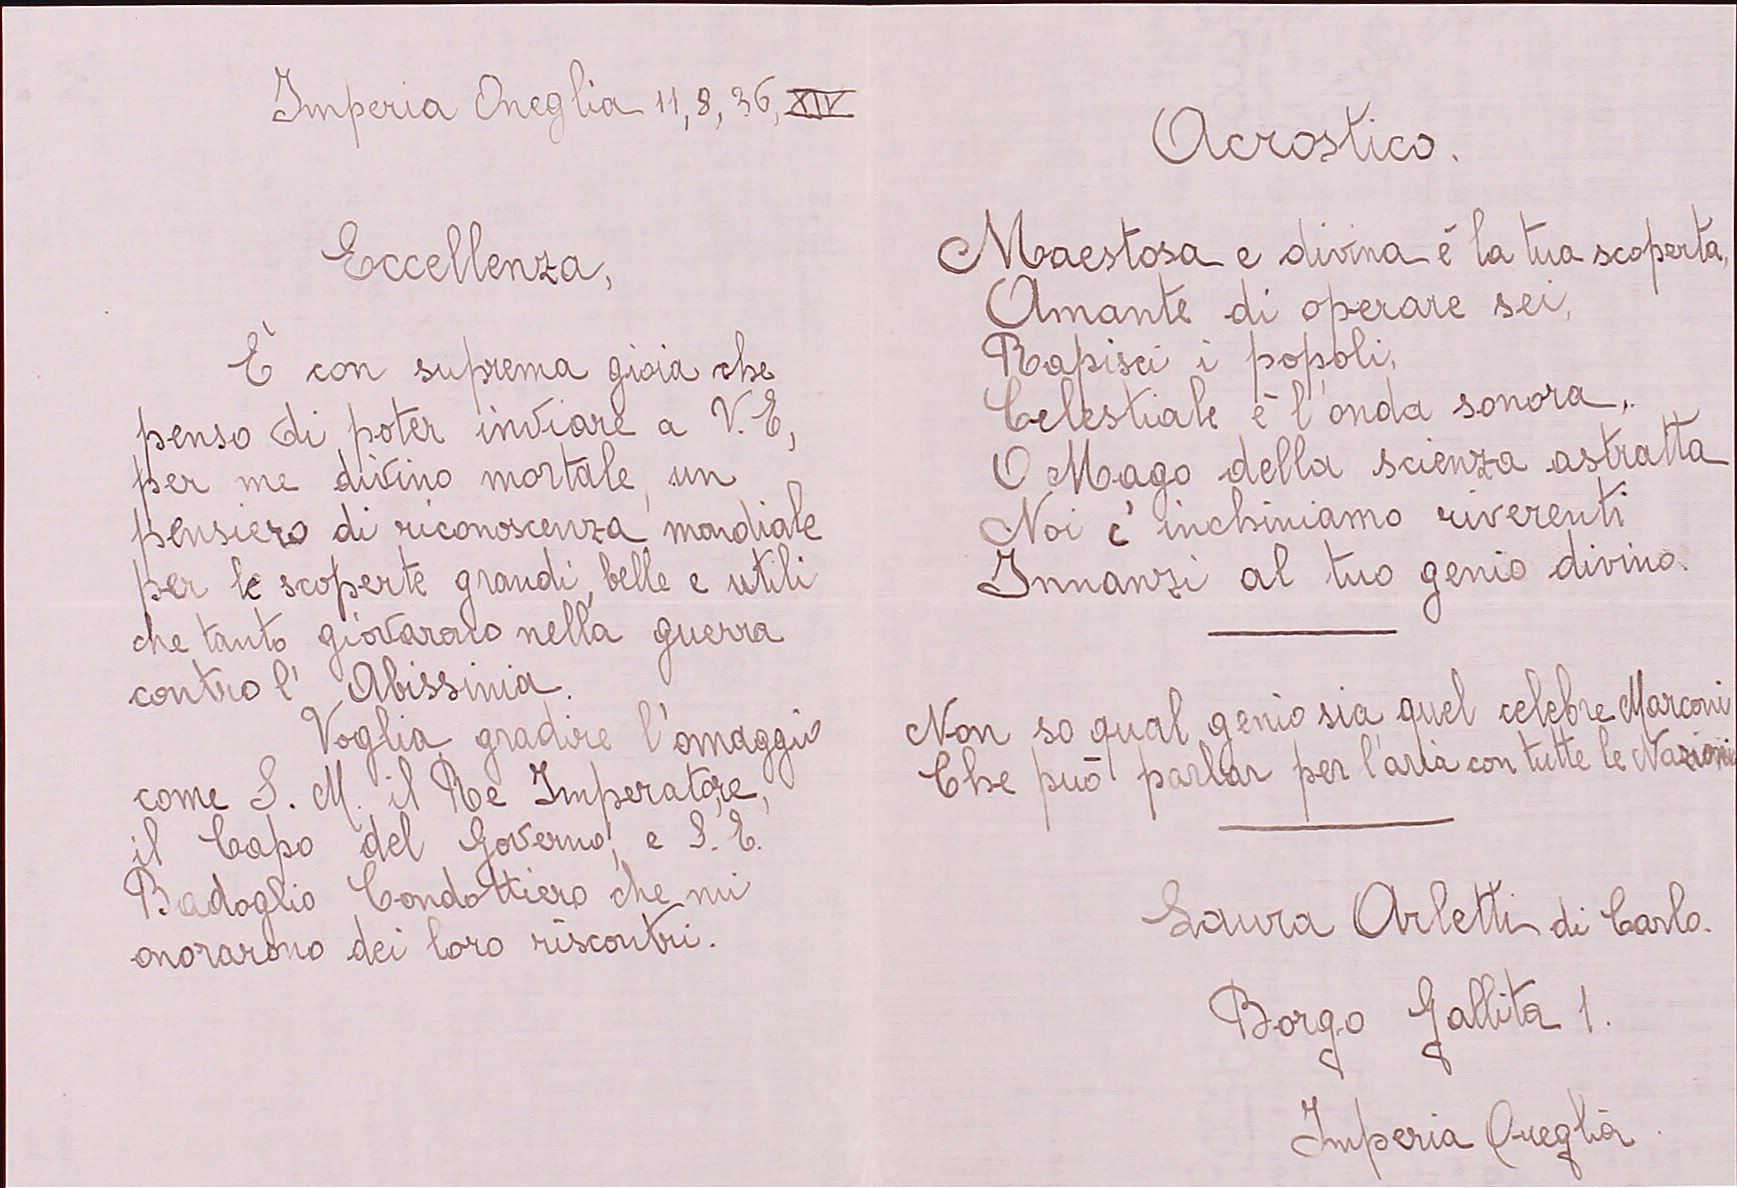 Imperia Oneglia 11, 8, 36, XIV
Eccellenza,
È con suprema gioia che
penso di poter inviare a V. E,
per me divino mortale, un
pensiero di riconoscenza mondiale
per le scoperte grandi, belle e utili
che tanto giovarono nella guerra
contro l' Abissinia.
Voglia gradire l'omaggio
come S. M. il Re Imperatore,
il Capo del Governo, e S. E.
Badoglio Condottiero che mi
onorarono dei loro riscontri.
Acrostico.
Maestosa e divina è la tua scoperta,
Amante di operare sei,
Rapisci i popoli,
Celestiale è l'onda sonora,
O Mago della scienza astratta
Noi c'inchiniamo riverenti
Innanzi al tuo genio divino.
Non so qual genio sia quel celebre Marconi
Che può parlar per l'aria con tutte le Nazioni
Laura Arletti di Carlo.
Borgo Gallita 1.
Imperia Oneglia.